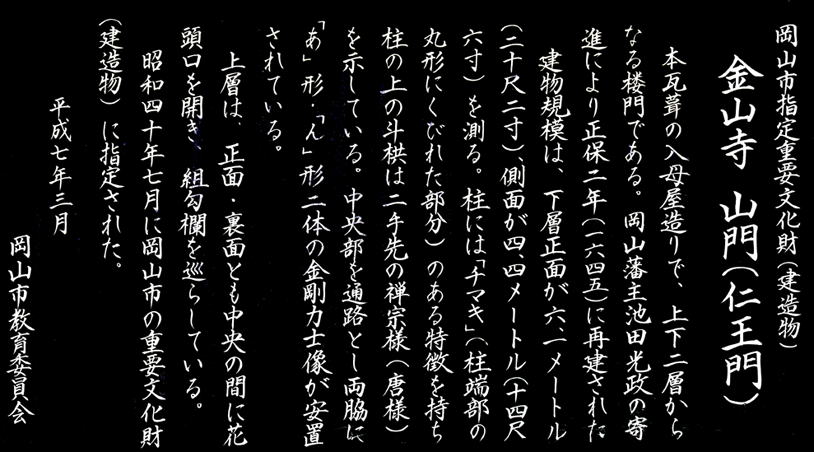 岡山市指定重要文化財(建造物)
金山寺 山門(仁王門)
本瓦葺の入母屋造りで、上下二層から
なる楼門である。岡山藩主池田光政の寄
進により正保二年(一六四五)に再建された
建物規模は、下層正面が六、一メートル
(二十尺二寸)、側面が四、四メートル(十四尺
六寸)を測る。柱には「チマキ」(柱端部の
丸形にくびれた部分)のある特徴を持ち
柱の上の斗栱は二手先の禅宗様(唐様)
を示している。中央部を通路とし両脇に
「あ」形・「ん」形二体の金剛力士像が安置
されている。
上層は、正面・裏面とも中央の間に花
頭口を開き、組勾欄を巡らしている。
昭和四十年七月に岡山市の重要文化財
(建造物)に指定された。
平成七年三月
岡山市教育委員会